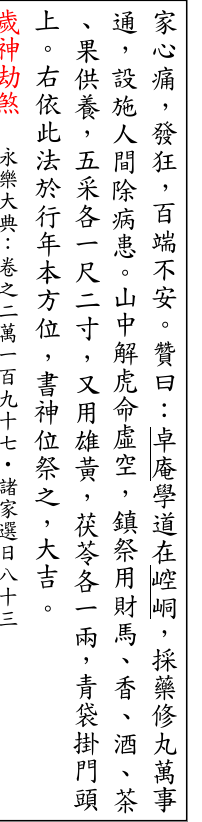 家心痛，發狂，百端不安。贊曰：卓庵學道在崆峒，採藥修丸萬事
通，設施人間除病患。山中解虎命虛空，鎮祭用財馬、香、酒、茶
、果供養，五采各一尺二寸，又用雄黃，茯苓各一兩，青袋掛門頭
上。右依此法於行年本方位，書神位祭之，大吉。
歲神劫煞　永樂大典：卷之二萬一百九十七・諸家選日八十三